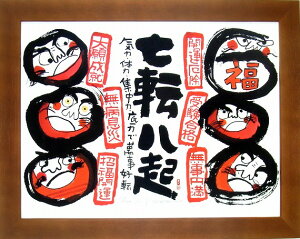 七転八起
気力体力集中力底力で萬事好転
開運厄除
福
受験合格
無事円満
大願成就
無病息災
招福開運